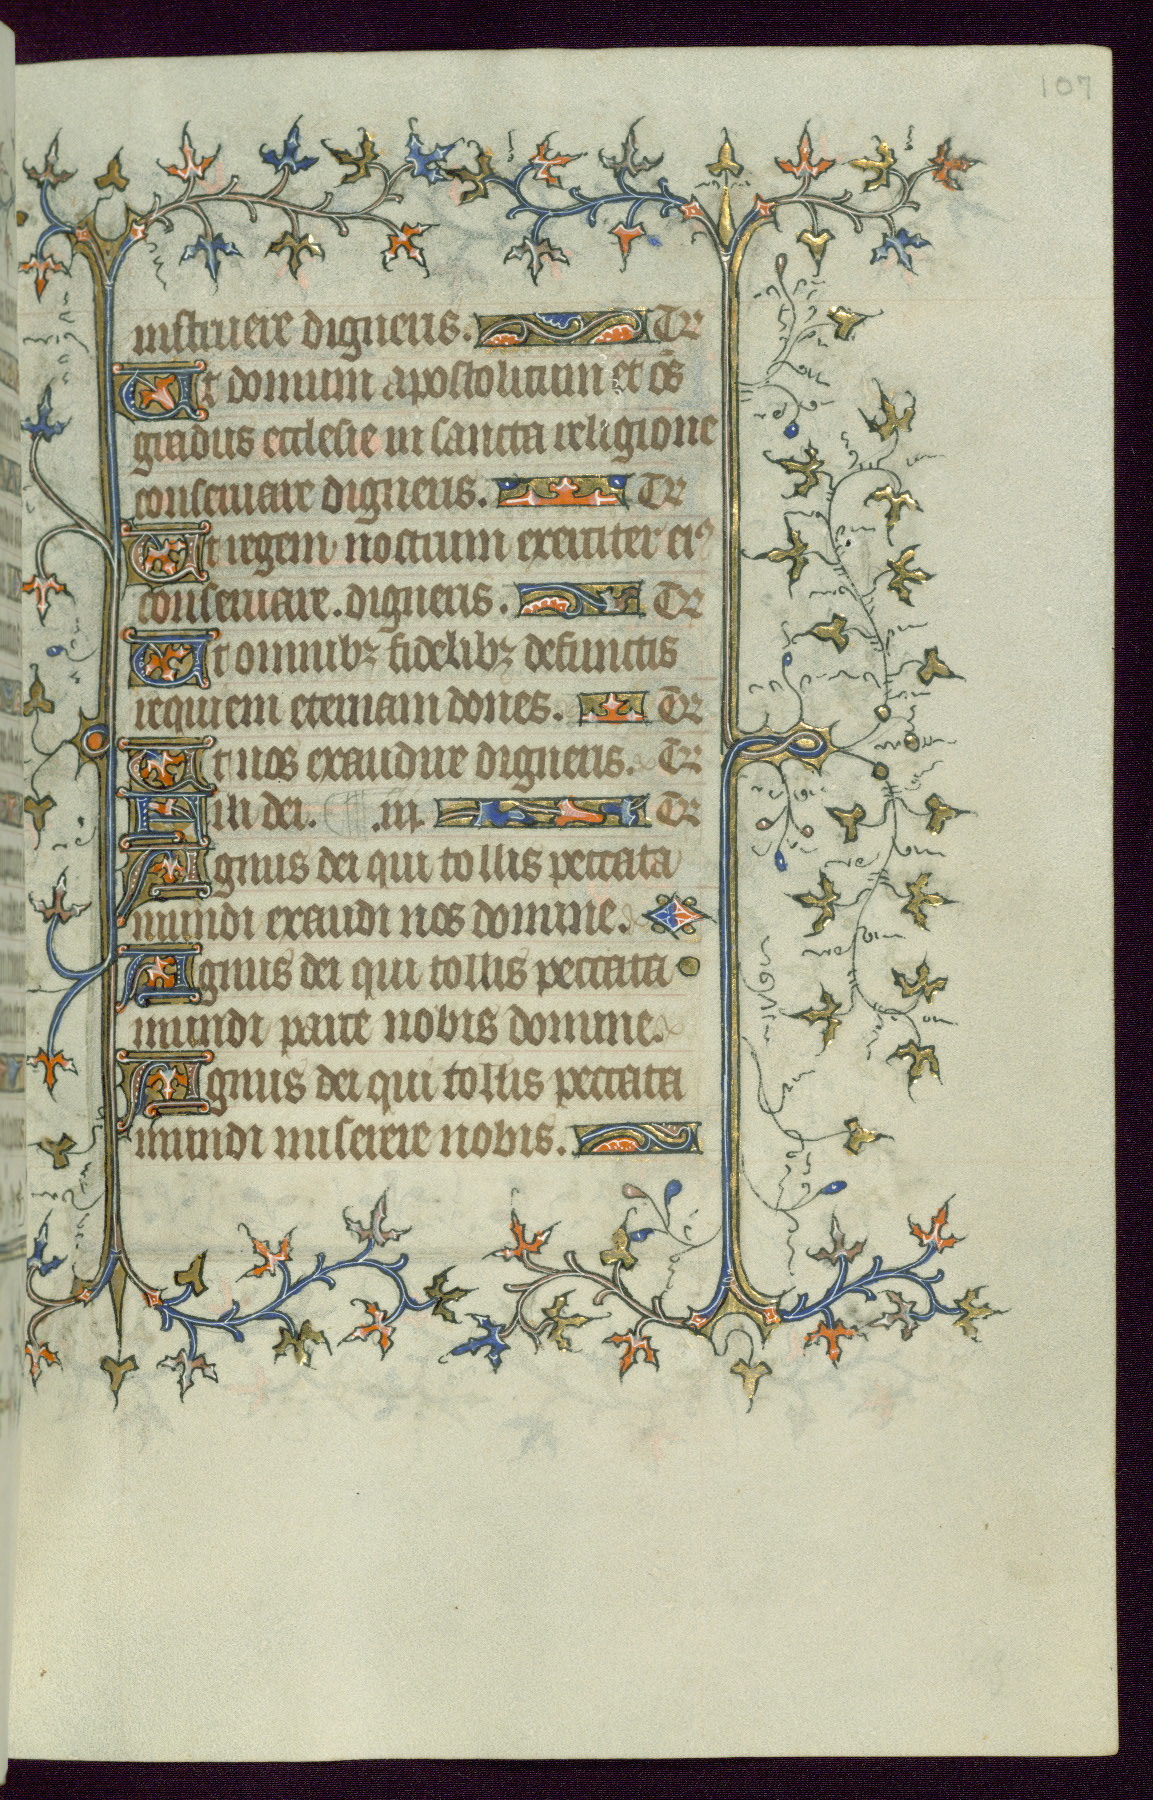 107
instruere digneris. Te
Ut domum apostolicum et oēs
gradus ecclesie in sancta religione
conseruare digneris. Te
Ut regem nostrum exerciter eiꝰ
conseruare. digneris. Te
Ut omnibꝫ fidelibꝫ defunctis
requiem eternam dones. Te
Ut nos exaudire digneris. Te
Fili dei. .iij. Te
Agnus dei qui tollis peccata
mundi exaudi nos domine.
Agnus dei qui tollis peccata
mundi parce nobis domine.
Agnus dei qui tollis peccata
mundi miserere nobis.